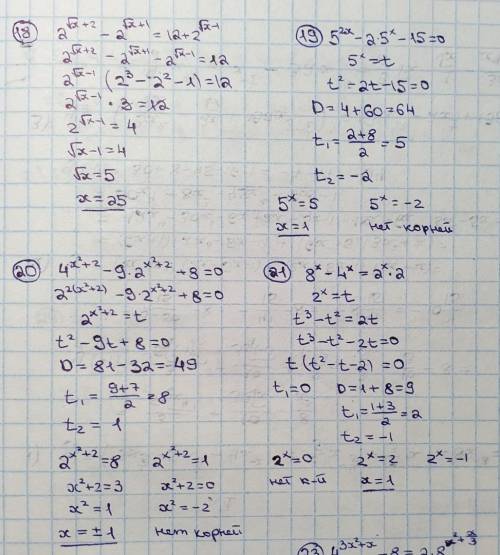 18) 2^(√x+2) - 2^(√x+1) = 12 + 2^(√x-1)
2^(√x+2) - 2^(√x+1) - 2^(√x-1) = 12
2^(√x-1) (2³ - 2² - 1) = 12
2^(√x-1) · 3 = 12
2^(√x-1) = 4
√x - 1 = 4
√x = 5
x = 25
19) 5^(2x) - 2·5^x - 15 = 0
5^x = t
t² - 2t - 15 = 0
D = 4 + 60 = 64
t₁ = (2+8)/2 = 5
t₂ = -2
5^x = 5 5^x = -2
x = 1 нет корней
20) 4^(x²+2) - 9·2^(x²+2) + 8 = 0
2^(2(x²+2)) - 9·2^(x²+2) + 8 = 0
2^(x²+2) = t
t² - 9t + 8 = 0
D = 81 - 32 = 49
t₁ = (9+7)/2 = 8
t₂ = 1
2^(x²+2) = 8 2^(x²+2) = 1
x² + 2 = 3 x² + 2 = 0
x² = 1 x² = -2
x = ±1 нет корней
21) 8^x - 4^x = 2^x · 2
2^x = t
t³ - t² = 2t
t³ - t² - 2t = 0
t (t² - t - 2) = 0
t₁ = 0 D = 1 + 8 = 9
t₁ = (1+3)/2 = 2
t₂ = -1
2^x = 0 2^x = 2 2^x = -1
нет к-й x = 1